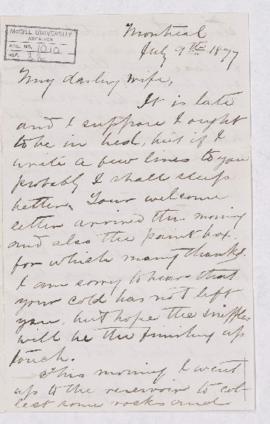 McGILL UNIVERSITY
ARCHIVES
ACC. NO. 1010
REF.
Montreal
July 9th 1897
My darling wife,
It is late
and I suppose I ought
to be in bed, but if I
write a few lines to you
probably I shall sleep
better. Your welcome
letter arrived this morning
and also the paint box,
for which many thanks.
I am sorry to hear that
your cold has not left
you, but hope the sniffles
will be the finishing up
touch.
This morning I went
up to the reservoir to col-
lect some rocks and